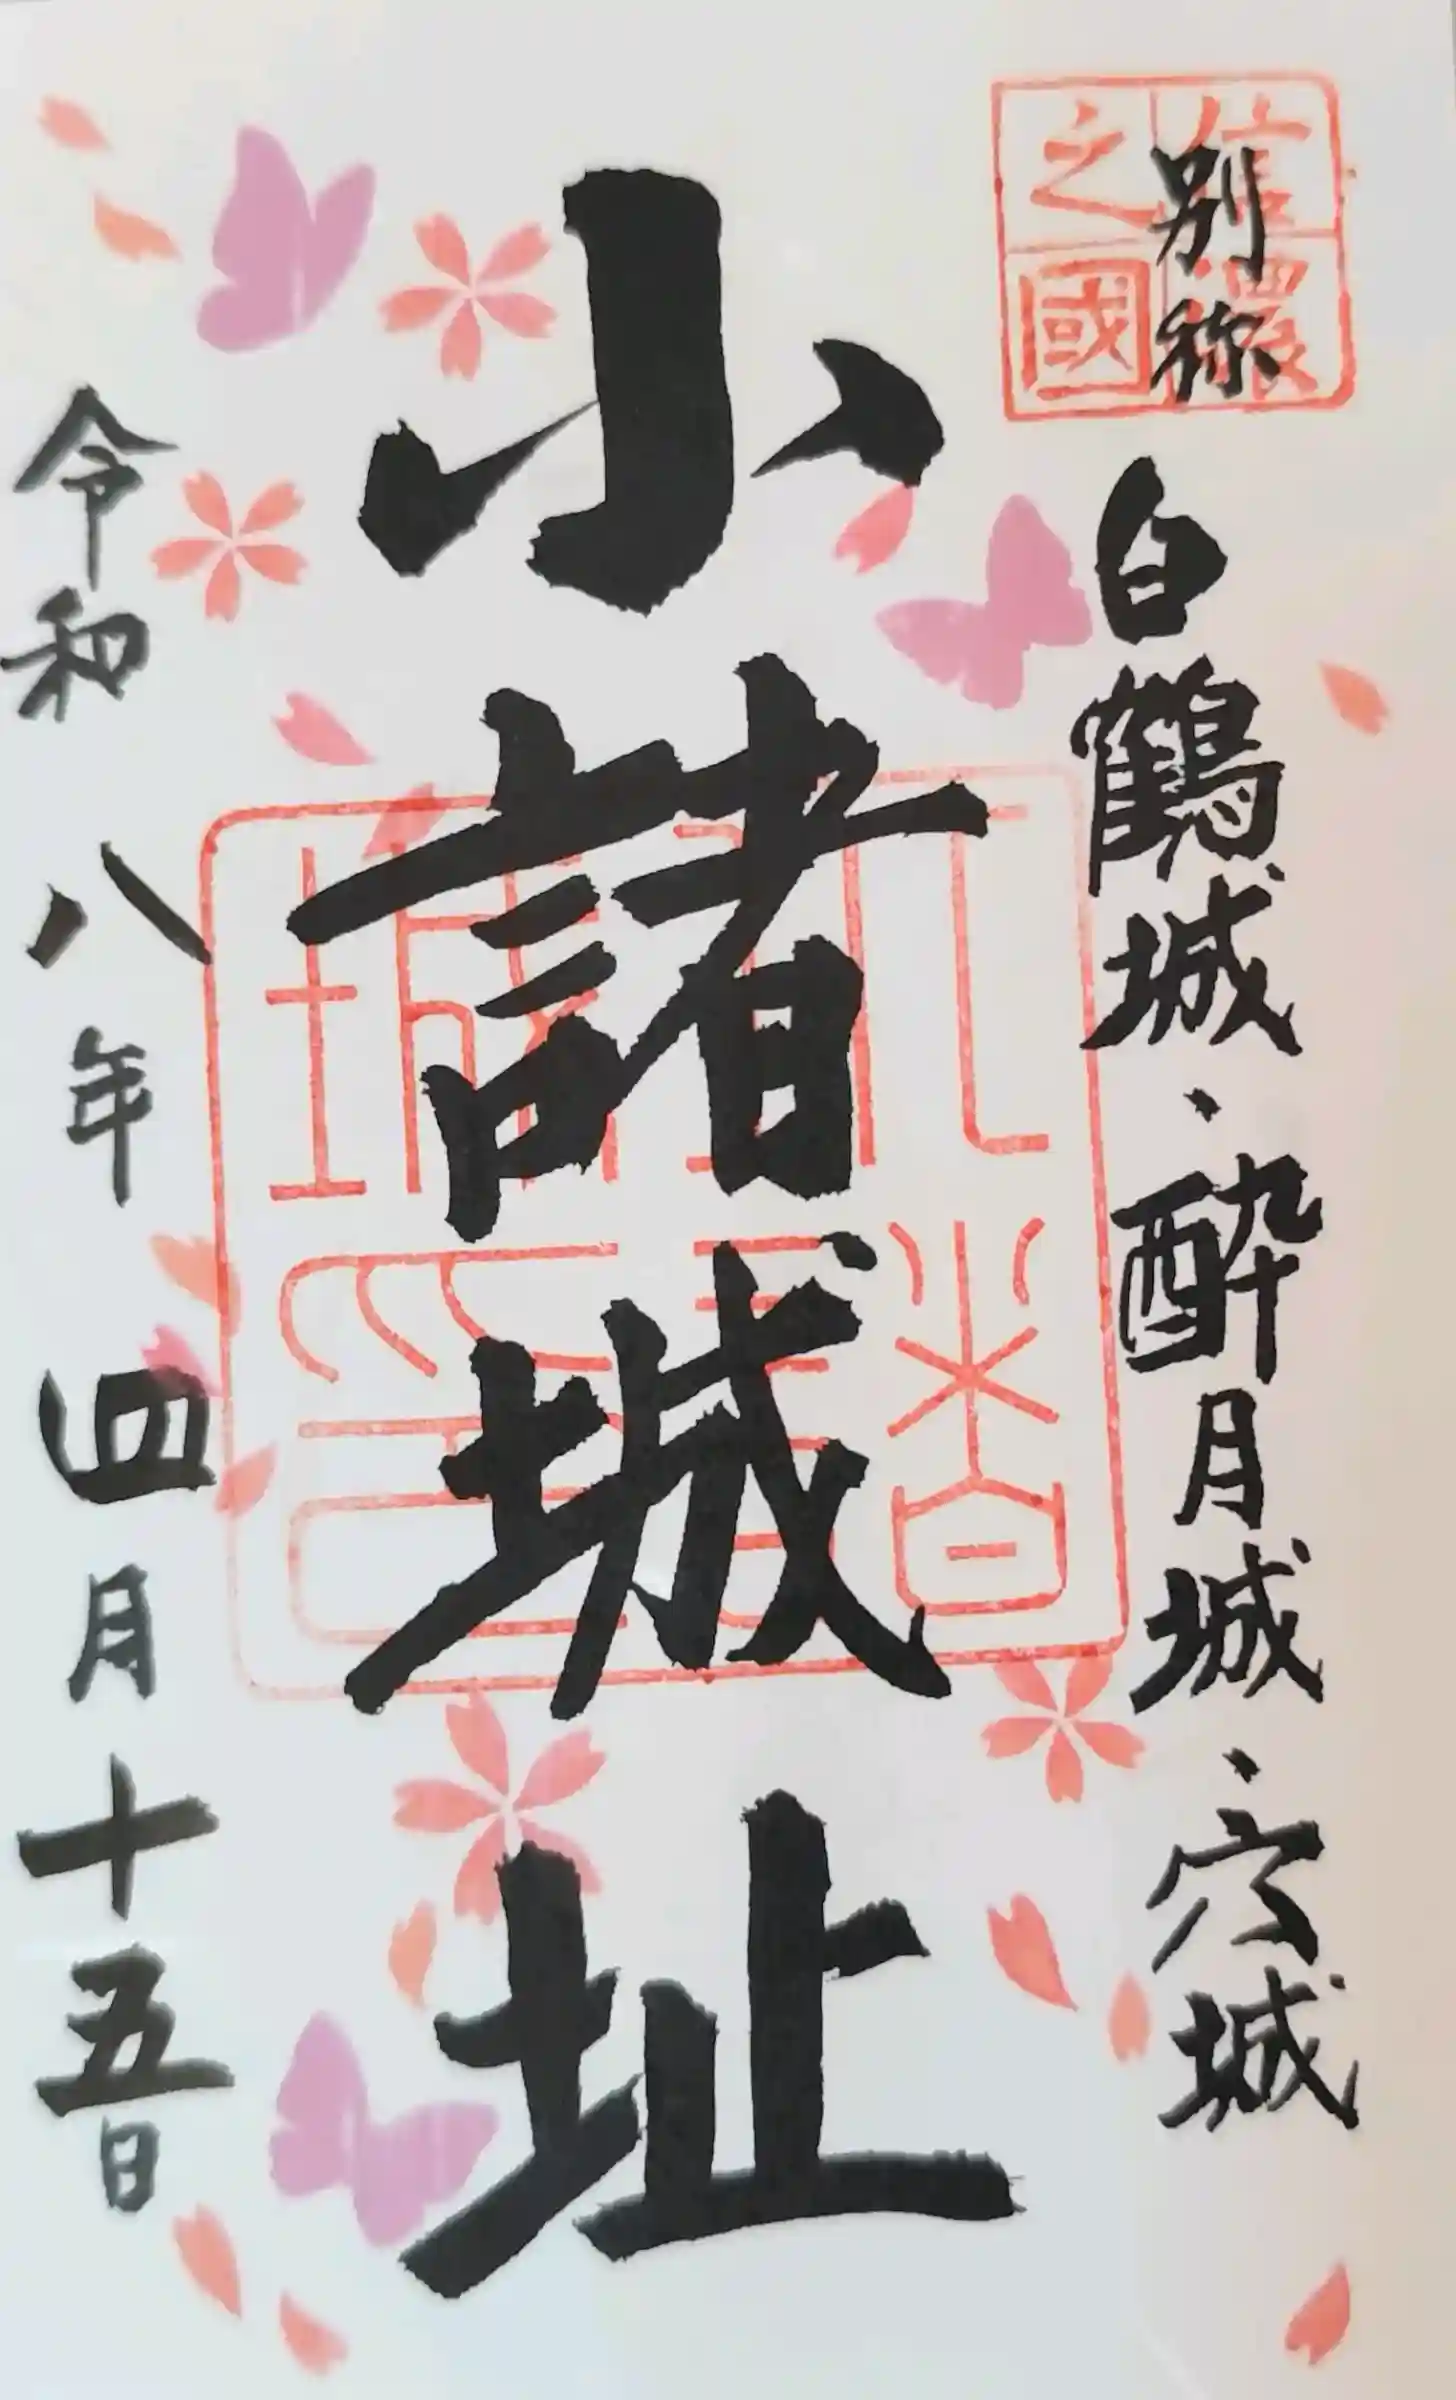 信濃
之國
別称 白鶴城・酔月城・穴城
小諸城址
小諸
城印
令和八年四月十五日